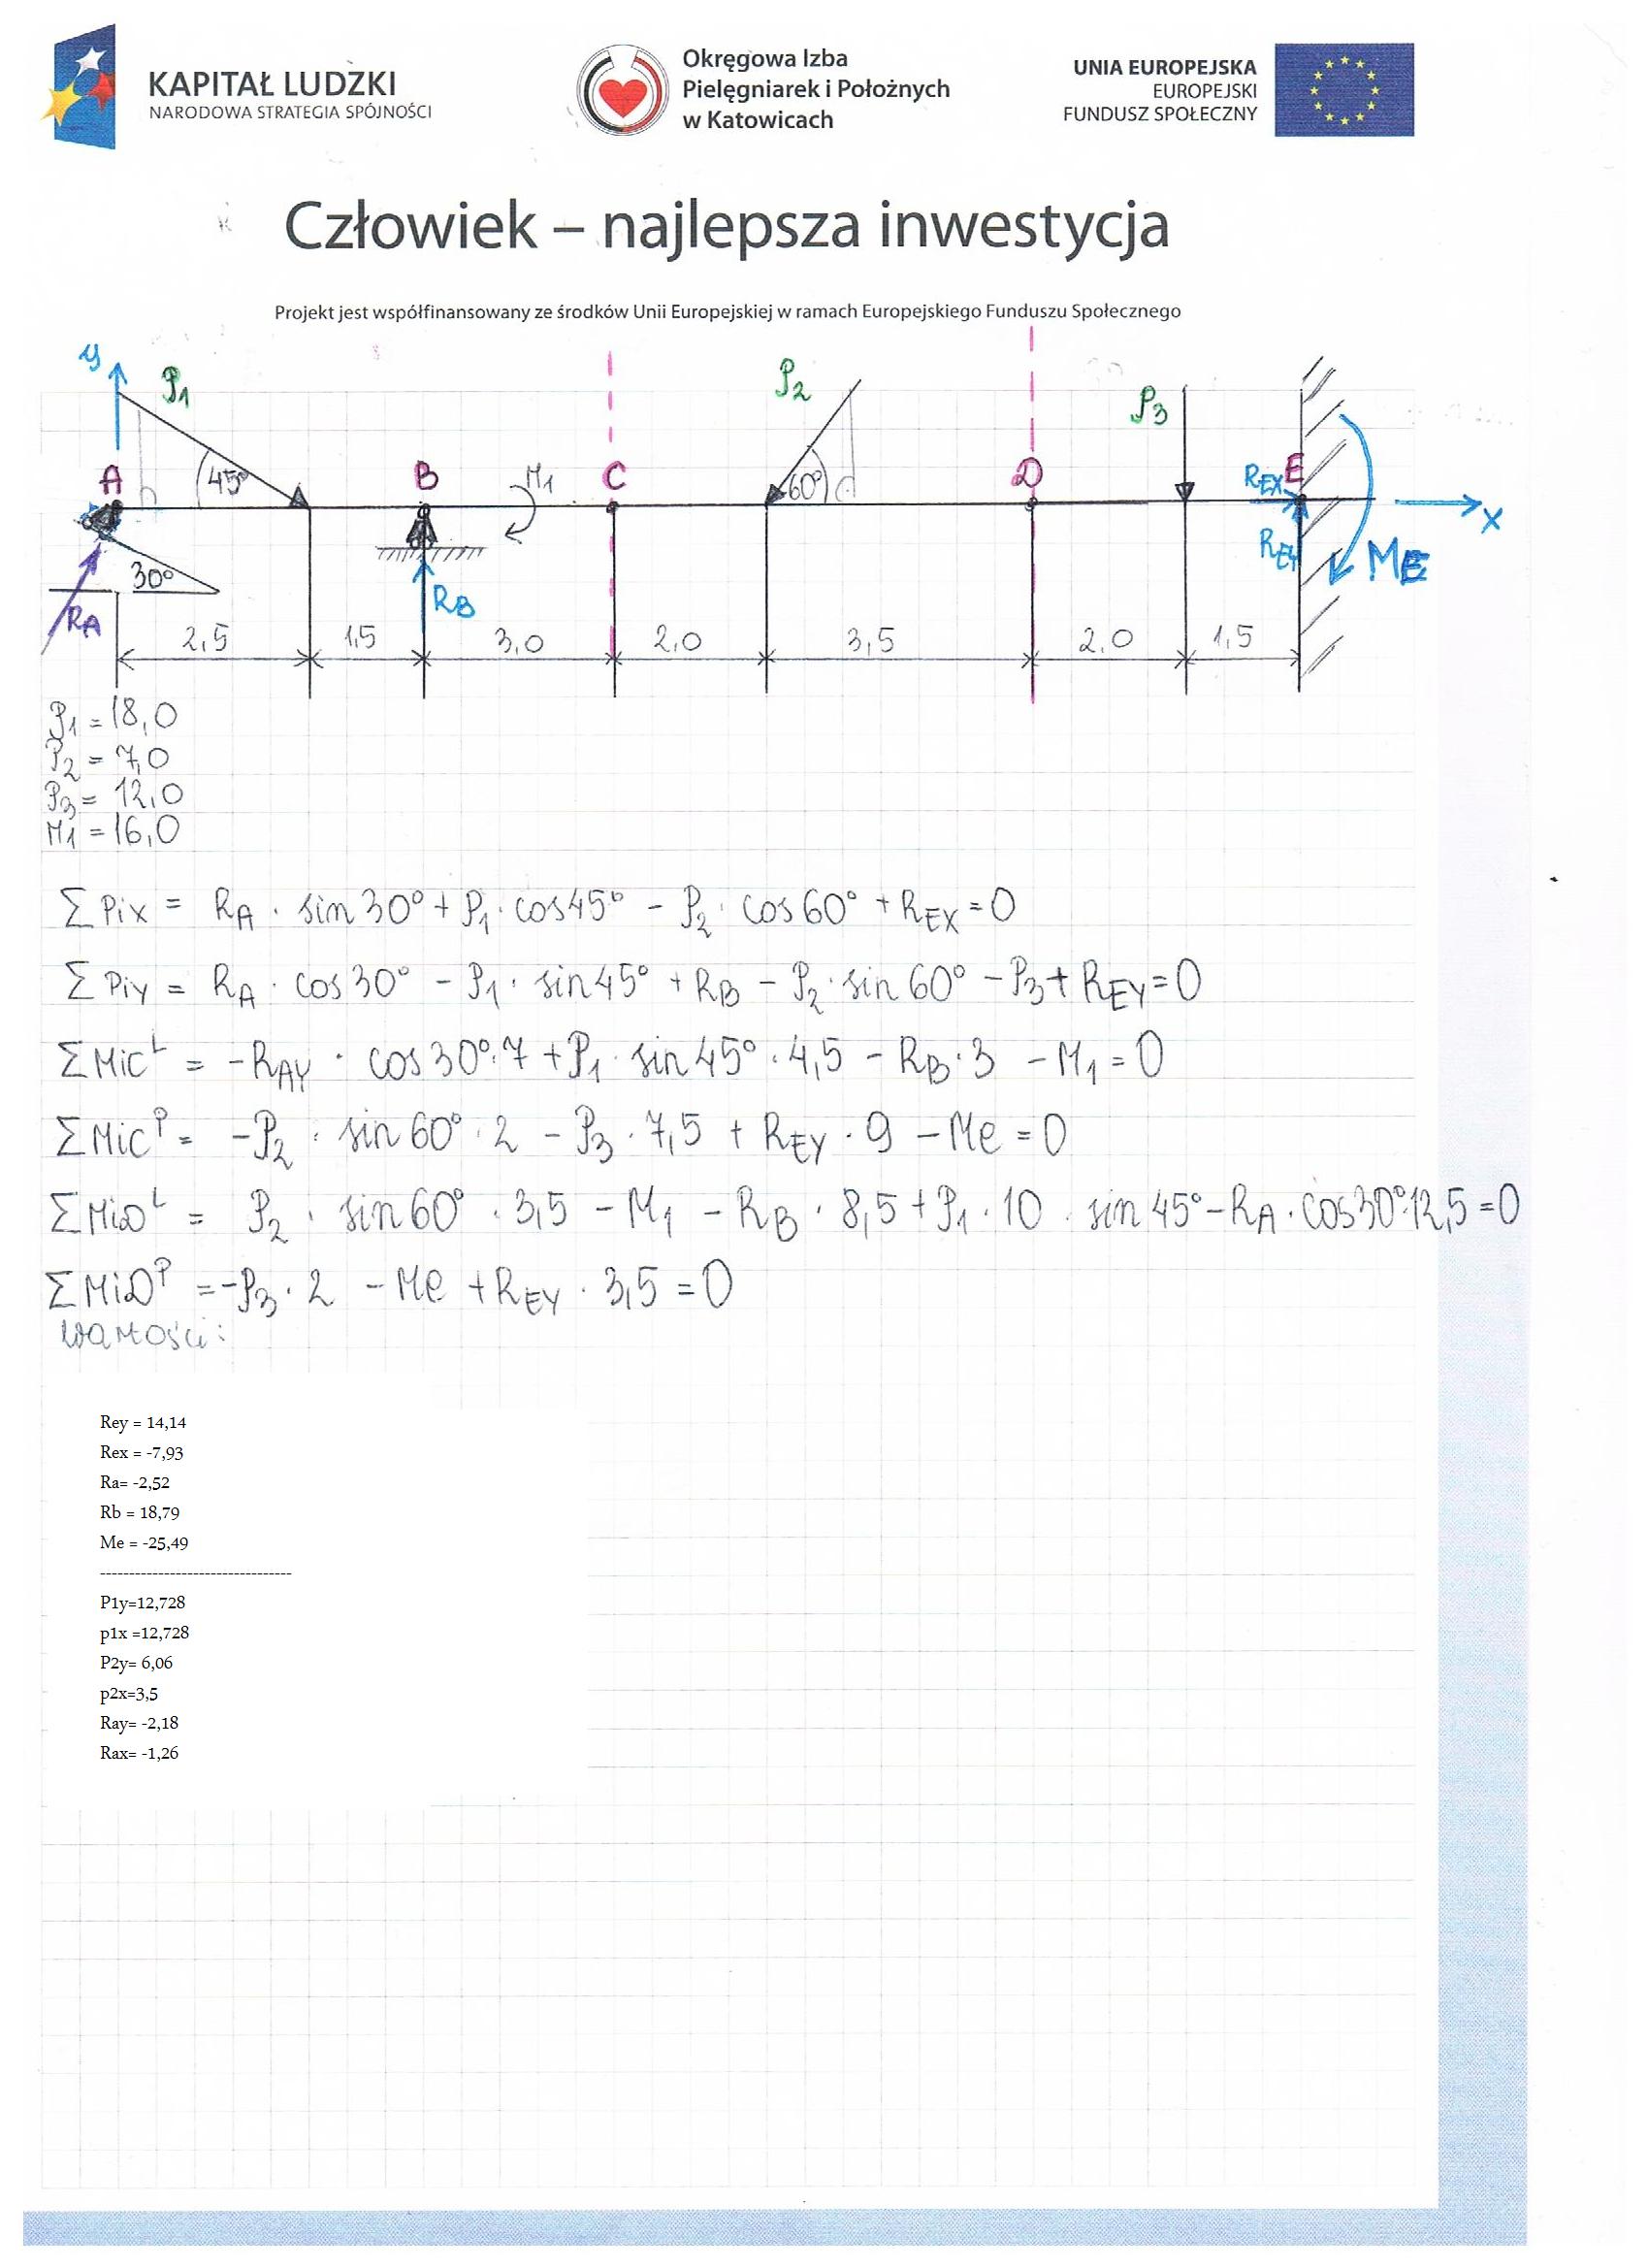 KAPITAŁ LUDZKI
NARODOWA STRATEGIA SPÓJNOŚCI
Okręgowa Izba
Pielęgniarek i Położnych
w Katowicach
UNIA EUROPEJSKA
EUROPEJSKI
FUNDUSZ SPOŁECZNY
Człowiek – najlepsza inwestycja
Projekt jest współfinansowany ze środków Unii Europejskiej w ramach Europejskiego Funduszu Społecznego
y P1 P2 P3
A 45° B M1 C 60° D REX E x
30° RA RB REY ME
2,5 1,5 3,0 2,0 3,5 2,0 1,5
P1 = 18,0
P2 = 7,0
P3 = 12,0
M1 = 16,0
∑ Pix = RA · sin 30° + P1 · cos 45° - P2 · cos 60° + REX = 0
∑ Piy = RA · cos 30° - P1 · sin 45° + RB - P2 · sin 60° - P3 + REY = 0
∑ MiC^L = -RAY · cos 30° · 7 + P1 · sin 45° · 4,5 - RB · 3 - M1 = 0
∑ MiC^P = -P2 · sin 60° · 2 - P3 · 7,5 + REY · 9 - Me = 0
∑ MiD^L = P2 · sin 60° · 3,5 - M1 - RB · 8,5 + P1 · 10 · sin 45° - RA · cos 30° · 12,5 = 0
∑ MiD^P = -P3 · 2 - Me + REY · 3,5 = 0
wartości:
Rey = 14,14
Rex = -7,93
Ra= -2,52
Rb = 18,79
Me = -25,49
---------------------------------
P1y=12,728
p1x =12,728
P2y= 6,06
p2x=3,5
Ray= -2,18
Rax= -1,26